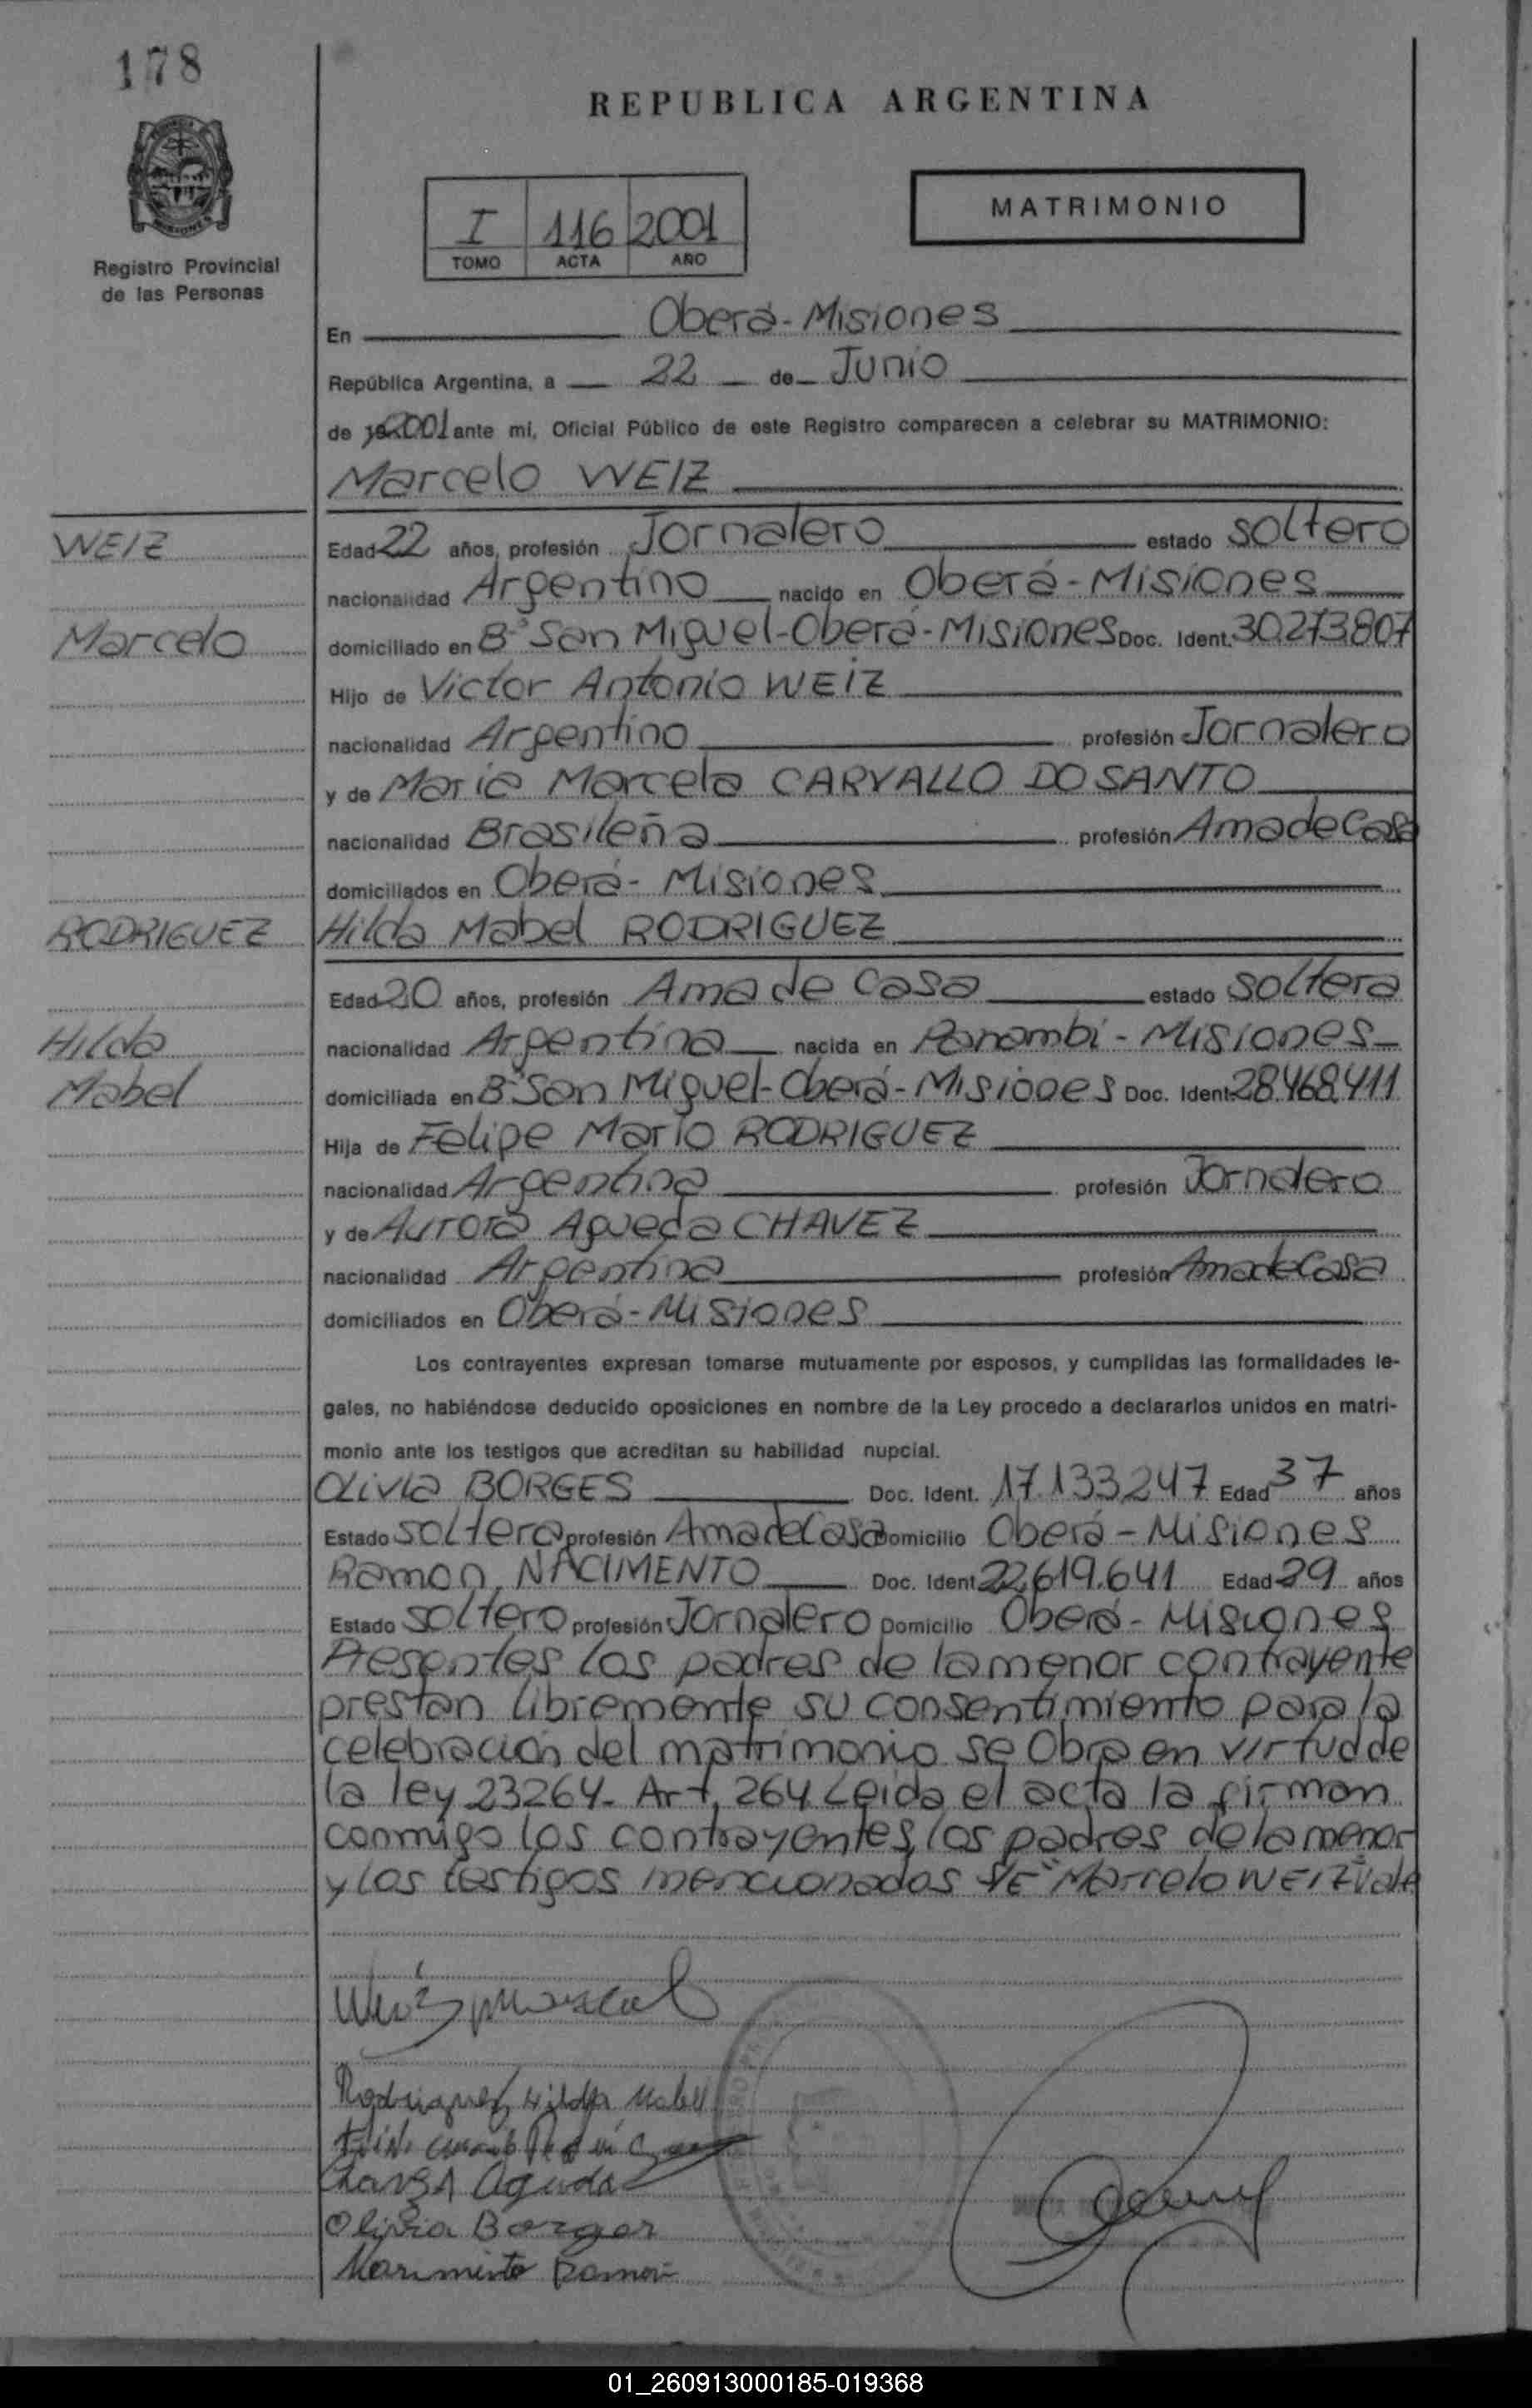 178
REPUBLICA ARGENTINA
I 116 2001
TOMO ACTA AÑO
MATRIMONIO
Registro Provincial
de las Personas
En Oberá-Misiones
República Argentina, a 22 de Junio
de 2001 ante mí, Oficial Público de este Registro comparecen a celebrar su MATRIMONIO:
Marcelo WEIZ
WEIZ
Edad 22 años, profesión Jornalero estado soltero
nacionalidad Argentino nacido en Oberá-Misiones
Marcelo
domiciliado en Bº San Miguel-Oberá-Misiones Doc. Ident. 30.273.807
Hijo de Victor Antonio WEIZ
nacionalidad Argentino profesión Jornalero
y de Maria Marcela CARVALLO DO SANTO
nacionalidad Brasileña profesión Ama de Casa
domiciliados en Oberá-Misiones
RODRIGUEZ
Hilda Mabel RODRIGUEZ
Edad 20 años, profesión Ama de Casa estado soltera
Hilda
nacionalidad Argentina nacida en Panambi-Misiones
Mabel
domiciliada en Bº San Miguel-Oberá-Misiones Doc. Ident. 28.468.411
Hija de Felipe Mario RODRIGUEZ
nacionalidad Argentina profesión Jornalero
y de Aurora Agueda CHAVEZ
nacionalidad Argentina profesión Ama de Casa
domiciliados en Oberá-Misiones
Los contrayentes expresan tomarse mutuamente por esposos, y cumplidas las formalidades le-
gales, no habiéndose deducido oposiciones en nombre de la Ley procedo a declararlos unidos en matri-
monio ante los testigos que acreditan su habilidad nupcial.
Olivia BORGES Doc. Ident. 17.133.247 Edad 37 años
Estado soltera profesión Ama de Casa Domicilio Oberá-Misiones
Ramon NACIMENTO Doc. Ident. 22.619.641 Edad 29 años
Estado soltero profesión Jornalero Domicilio Oberá-Misiones
Presentes los padres de la menor contrayente
prestan libremente su consentimiento para la
celebración del matrimonio se Obra en virtud de
la ley 23264- Art. 264 Leida el acta la firman
conmigo los contrayentes, los padres de la menor
y los testigos mencionados S/E "Marcelo WEIZ" Vale
Weiz Marcelo
Rodriguez Hilda Mabel
Agueda
Olivia Borges
Ramon
01_260913000185-019368